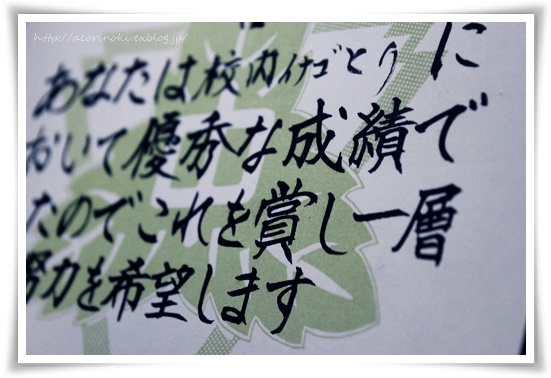 http://acorinoki.exblog.jp/
あなたは校内イナゴとりに
おいて優秀な成績で
たのでこれを賞し一層
努力を希望します